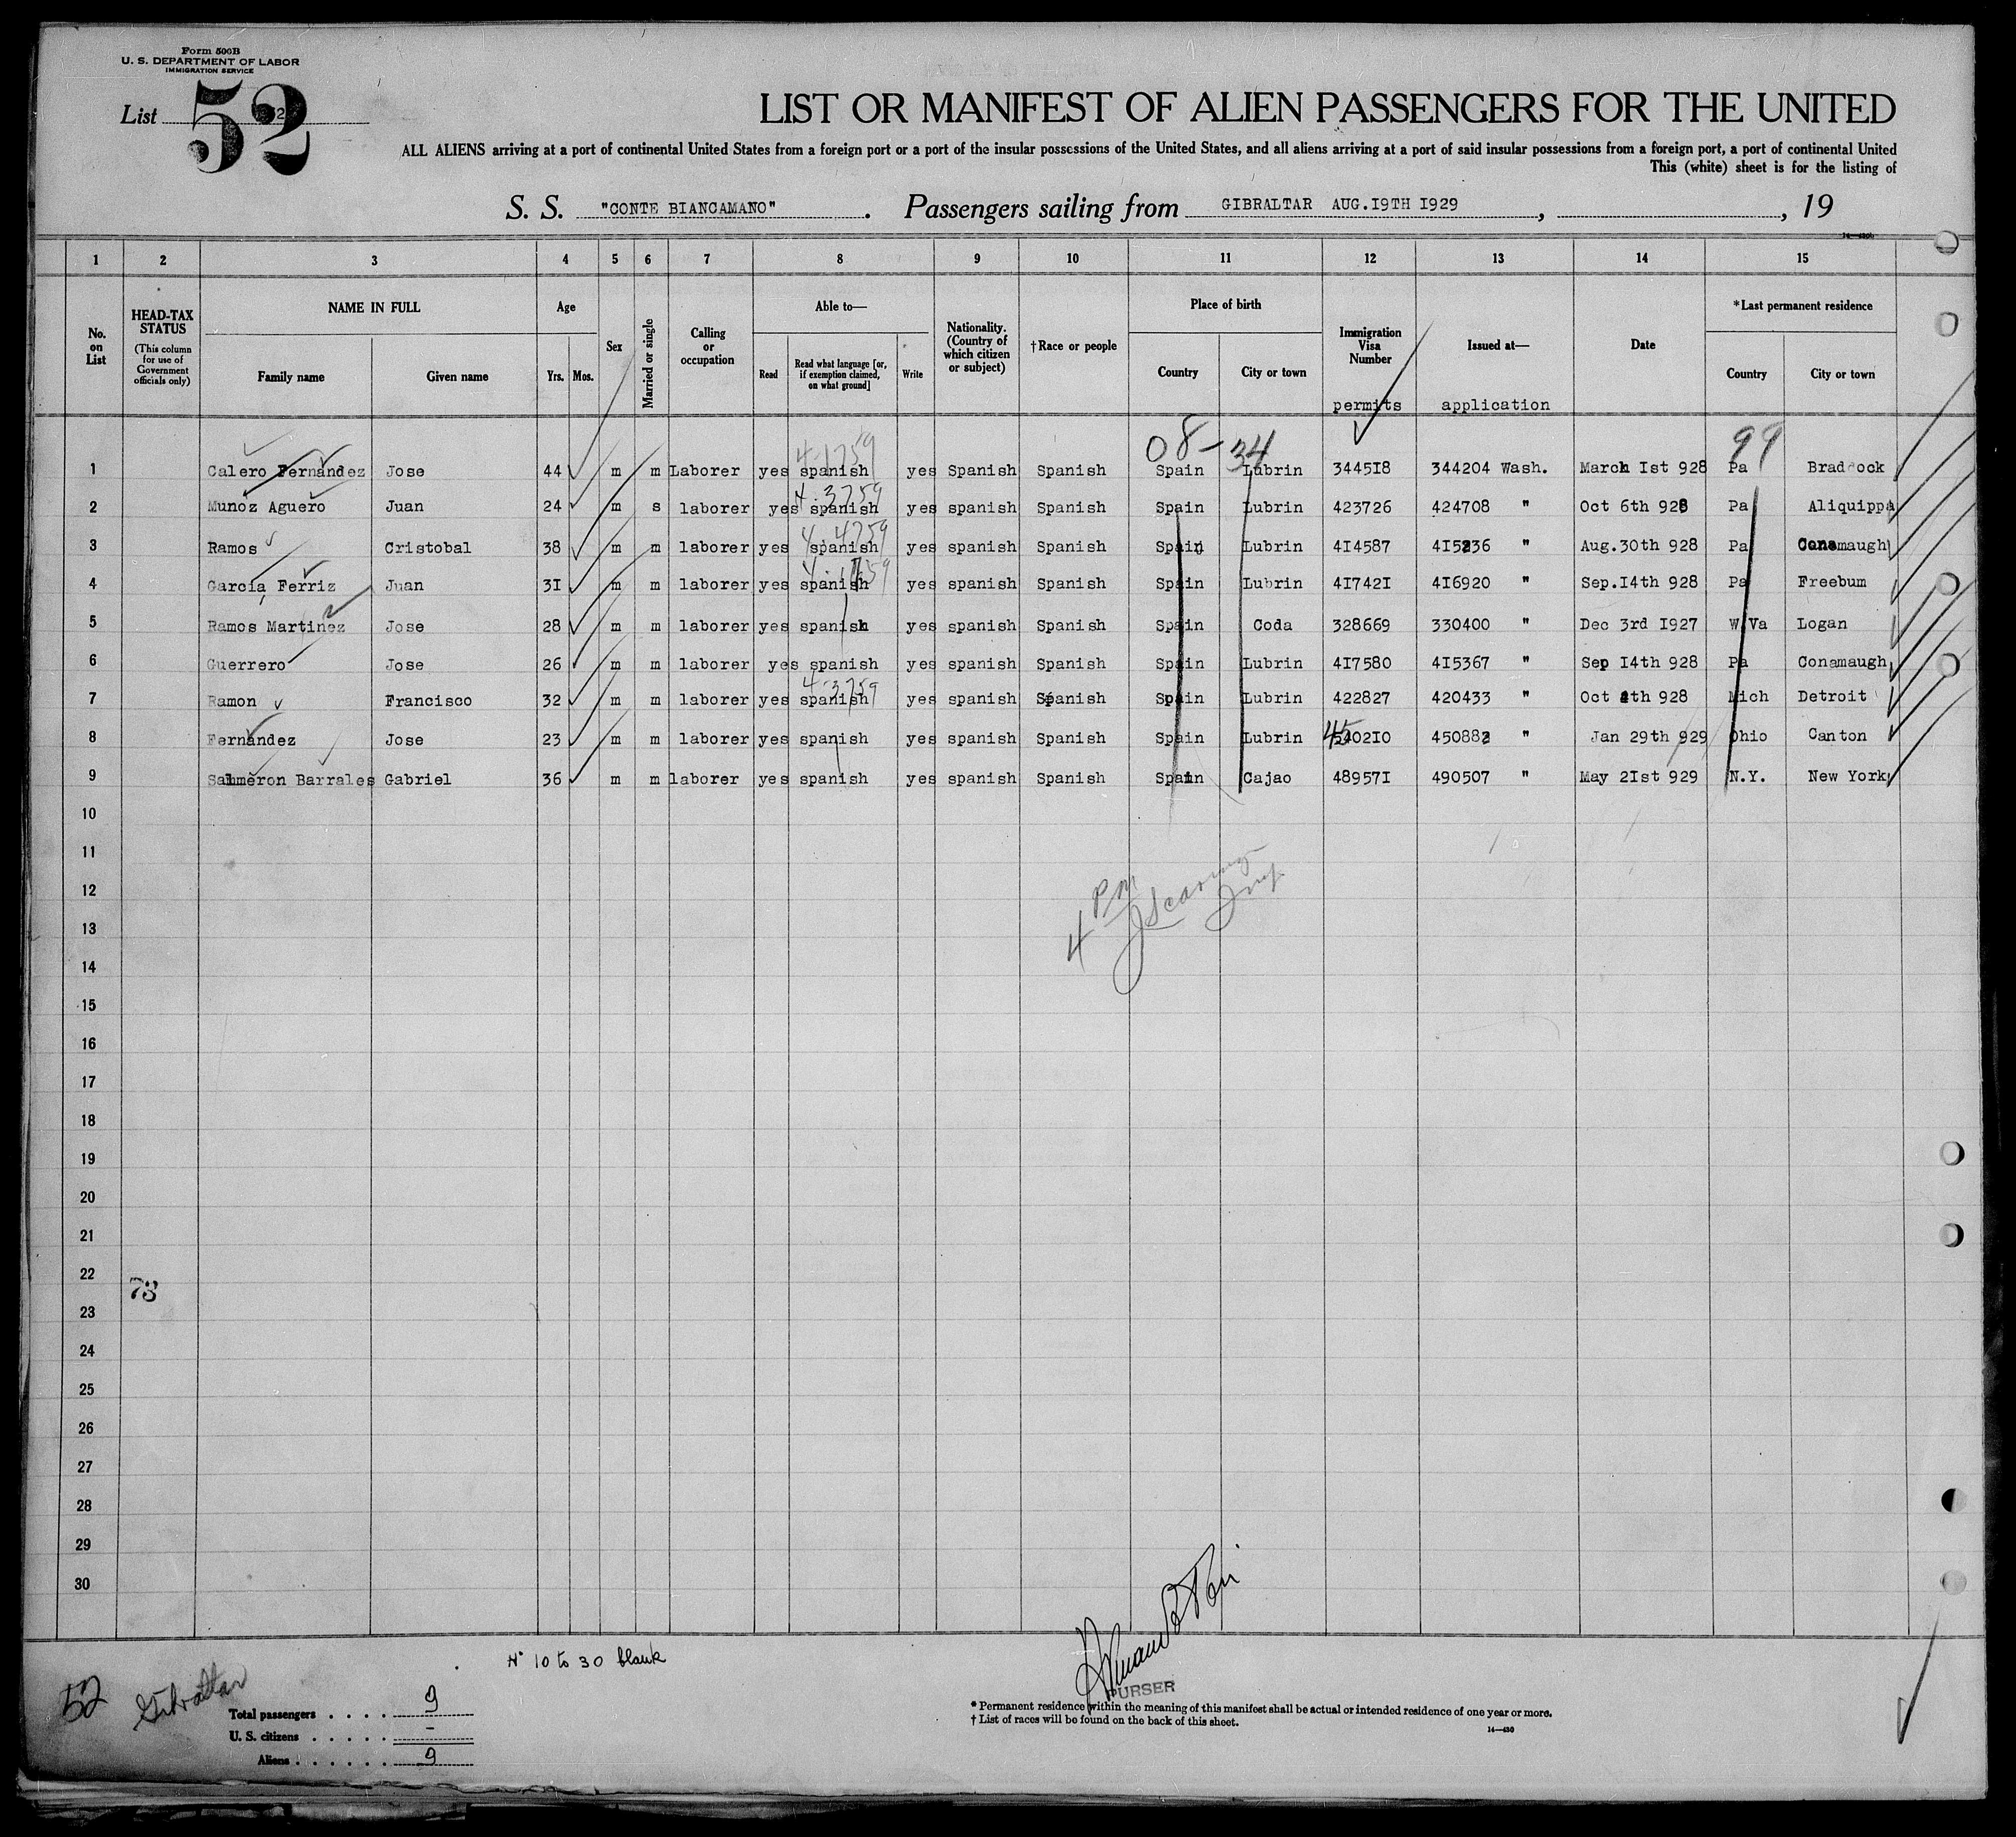 Form 500B
U. S. DEPARTMENT OF LABOR
IMMIGRATION SERVICE
List 52
LIST OR MANIFEST OF ALIEN PASSENGERS FOR THE UNITED
ALL ALIENS arriving at a port of continental United States from a foreign port or a port of the insular possessions of the United States, and all aliens arriving at a port of said insular possessions from a foreign port, a port of continental United
This (white) sheet is for the listing of
S. S. "CONTE BIANCAMANO". Passengers sailing from GIBRALTAR AUG.19TH 1929, , 19
1 2 3 4 5 6 7 8 9 10 11 12 13 14 15
No. on List
HEAD-TAX STATUS
(This column for use of Government officials only)
NAME IN FULL
Family name Given name
Age
Yrs. Mos.
Sex
Married or single
Calling or occupation
Able to—
Read
Read what language [or, if exemption claimed, on what ground]
Write
Nationality. (Country of which citizen or subject)
†Race or people
Place of birth
Country City or town
Immigration Visa Number
permits
Issued at—
application
Date
*Last permanent residence
Country City or town
4-1759 08-34 99
1 Calero Fernandez Jose 44 m m Laborer yes spanish yes Spanish Spanish Spain Lubrin 344518 344204 Wash. March 1st 928 Pa Braddock
4-3759
2 Munoz Aguero Juan 24 m s laborer yes spanish yes spanish Spanish Spain Lubrin 423726 424708 " Oct 6th 928 Pa Aliquippa
4-4759
3 Ramos Cristobal 38 m m laborer yes spanish yes spanish Spanish Spain Lubrin 414587 415236 " Aug.30th 928 Pa Conemaugh
4 Garcia Ferriz Juan 31 m m laborer yes spanish yes spanish Spanish Spain Lubrin 417421 416920 " Sep.14th 928 Pa Freebum
5 Ramos Martinez Jose 28 m m laborer yes spanish yes spanish Spanish Spain Coda 328669 330400 " Dec 3rd 1927 W.Va Logan
6 Guerrero Jose 26 m m laborer yes spanish yes spanish Spanish Spain Lubrin 417580 415367 " Sep 14th 928 Pa Conamaugh
4-3759
7 Ramon Francisco 32 m m laborer yes spanish yes spanish Spanish Spain Lubrin 422827 420433 " Oct 4th 928 Mich Detroit
8 Fernandez Jose 23 m m laborer yes spanish yes spanish Spanish Spain Lubrin 450210 450882 " Jan 29th 929 Ohio Canton
9 Salmeron Barrales Gabriel 36 m m laborer yes spanish yes spanish Spanish Spain Cajao 489571 490507 " May 21st 929 N.Y. New York
10
11
12
4 PM
13
14
15
16
17
18
19
20
21
22
73
23
24
25
26
27
28
29
30
Nº 10 to 30 blank
PURSER
52 Gibraltar
Total passengers . . . . 9
U. S. citizens . . . . . –
Aliens . . . . . . 9
* Permanent residence within the meaning of this manifest shall be actual or intended residence of one year or more.
† List of races will be found on the back of this sheet.
14—430